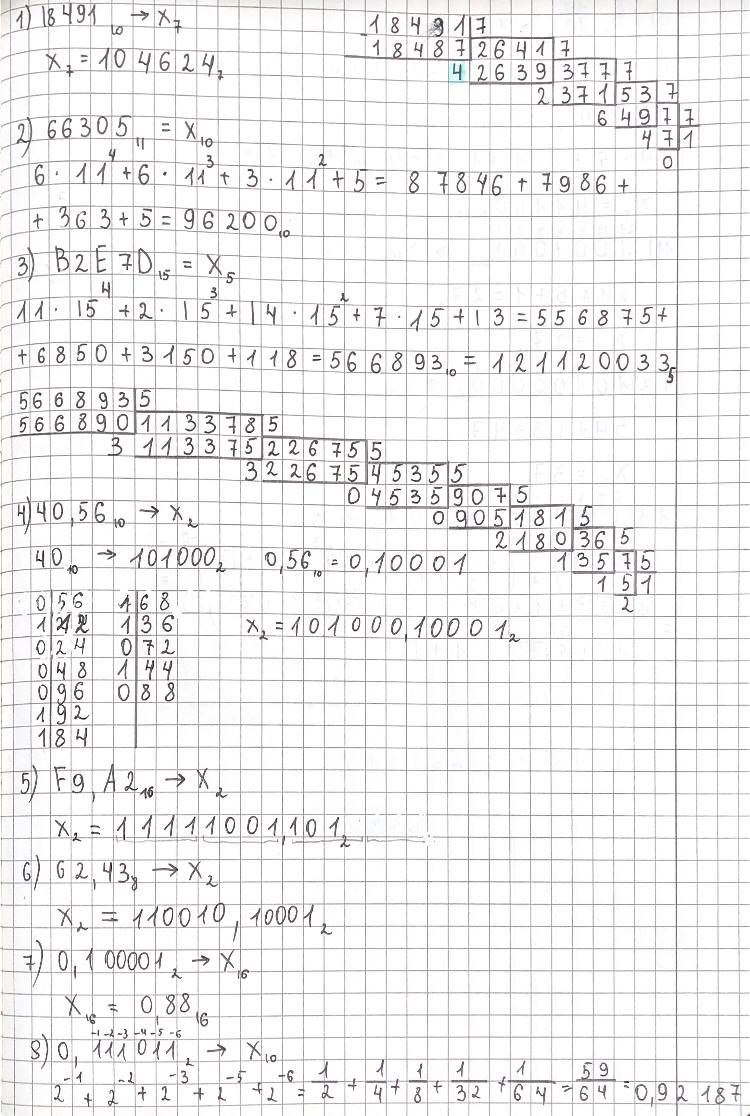 1) 18491₁₀ → X₇
X₇ = 104624₇
18491|7
18487|2641|7
4 2639 377|7
2 371 53|7
6 49 7|7
4 7 1
0
2) 66305₁₁ = X₁₀
6 · 11⁴ + 6 · 11³ + 3 · 11² + 5 = 87846 + 7986 +
+ 363 + 5 = 96200₁₀
3) B2E7D₁₅ = X₅
11 · 15⁴ + 2 · 15³ + 14 · 15² + 7 · 15 + 13 = 556875 +
+ 6850 + 3150 + 118 = 566893₁₀ = 121120033₅
566893|5
566890|113378|5
3 113375|22675|5
3 22675|4535|5
0 4535|907|5
0 905|181|5
2 180|36|5
1 35|7|5
1 5|1
2
4) 40,56₁₀ → X₂
40₁₀ → 101000₂ 0,56₁₀ = 0,10001
0|56 1|68
1|12 1|36
0|24 0|72
0|48 1|44
0|96 0|88
1|92
1|84
X₂ = 101000,10001₂
5) F9,A2₁₆ → X₂
X₂ = 11111001,101₂
6) 62,43₈ → X₂
X₂ = 110010,10001₂
7) 0,100001₂ → X₁₆
X₁₆ = 0,88₁₆
-1 -2 -3 -4 -5 -6
8) 0,111011₂ → X₁₀
2⁻¹ + 2⁻² + 2⁻³ + 2⁻⁵ + 2⁻⁶ = 1/2 + 1/4 + 1/8 + 1/32 + 1/64 = 59/64 = 0,92187